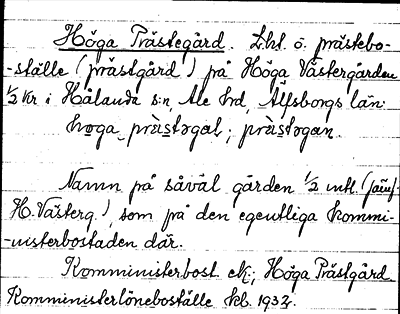 Höga Prästegård. Lht. o. prästebo-
-ställe (prästgård) på Höga Västergården
1/2 kr i Hålanda s:n, Ale hd, Älfsborgs län.
høga prästəgaḷ; prästəgan.
Namn på såväl gården 1/2 mtl. (jämf.
H. Västerg.), som på den egentliga kommi-
-nisterbostaden där.
Komministerbost. ek.; Höga Prästgård
Komministerlöneboställe kb. 1932.